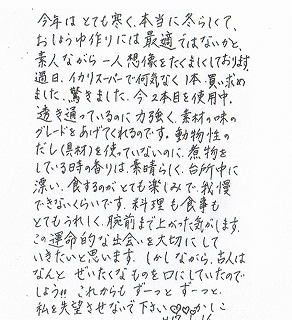 今年は とても寒く、本当に冬らしくて、
おしょうゆ作りには最適ではないかと、
素人ながら一人想像をたくましくしております。
過日、イカリスーパーで何気なく1本、買い求め
ました。驚きました。今2本目を使用中。
透き通っているのに力強く、素材の味の
グレードをあげてくれるのです。動物性の
だし(具材)を使っていないのに、煮物を
している時の香りは、素晴らしく、台所中に
漂い、食するのがとても楽しみで、我慢
できないくらいです。料理も食事も
とてもうれしく、腕前まで上がった気がします。
この運命的な出会いを大切にして
いきたいと思います。しかしながら、古人は
なんと ぜいたくなものを口にしていたので
しょう!! これからも ずーっと ずーっと、
私を失望させないで下さい♡♡かしこ